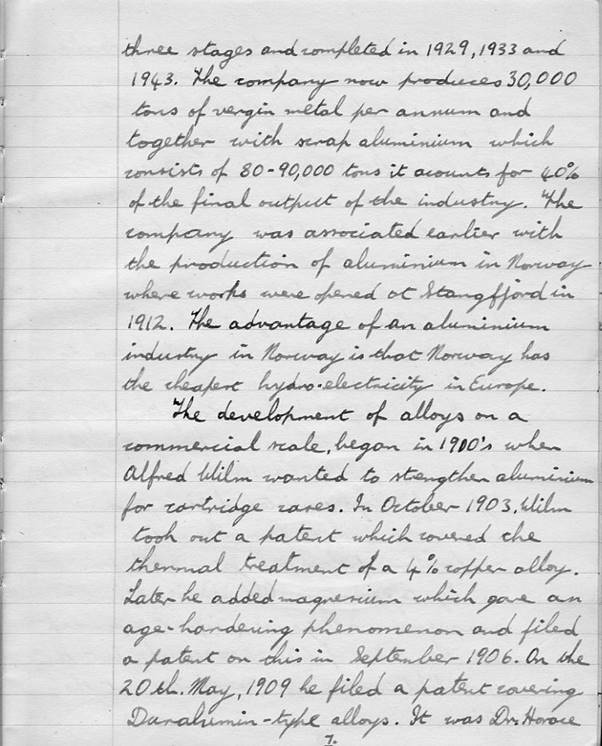 three stages and completed in 1929, 1933 and
1943. The company now produces 30,000
tons of vergin metal per annum and
together with scrap aluminium which
consists of 80-90,000 tons it acounts for 40%
of the final output of the industry. The
company was associated earlier with
the production of aluminium in Norway
where works were opened at Stangfjord in
1912. The advantage of an aluminium
industry in Norway is that Norway has
the cheapest hydro-electricity in Europe.
The development of alloys on a
commercial scale, began in 1900's when
Alfred Wilm wanted to strengthen aluminium
for cartridge cases. In October 1903, Wilm
took out a patent which covered the
thermal treatment of a 4% copper alloy.
Later he added magnesium which gave an
age-hardering phenomenon and filed
a patent on this in September 1906. On the
20th. May, 1909 he filed a patent covering
Duralumin-type alloys. It was Dr. Horace
7.